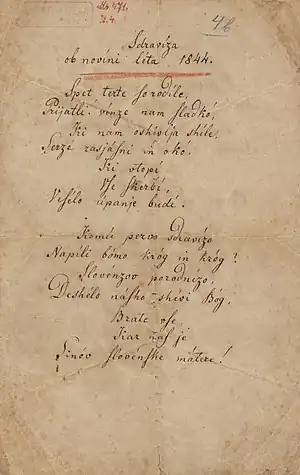 Ms 471
II.4.
46
Sdravíza
ob novíni léta 1844.
Spet terte so rodile,
Prijatli, vínze nam sladkó,
Ki nam oshivlja shile,
Serzé rasjásni in okó.
Ki vtopí
Vse skerbí,
Vͤsélo úpanje budí.
Komú pervo sdravízo
Napíli bómo króg in króg?
Slovénzov porodnízo,
Deshélo násho shívi Bóg,
Brate vse,
Kar nas je
Sinóv slovénske mátere!